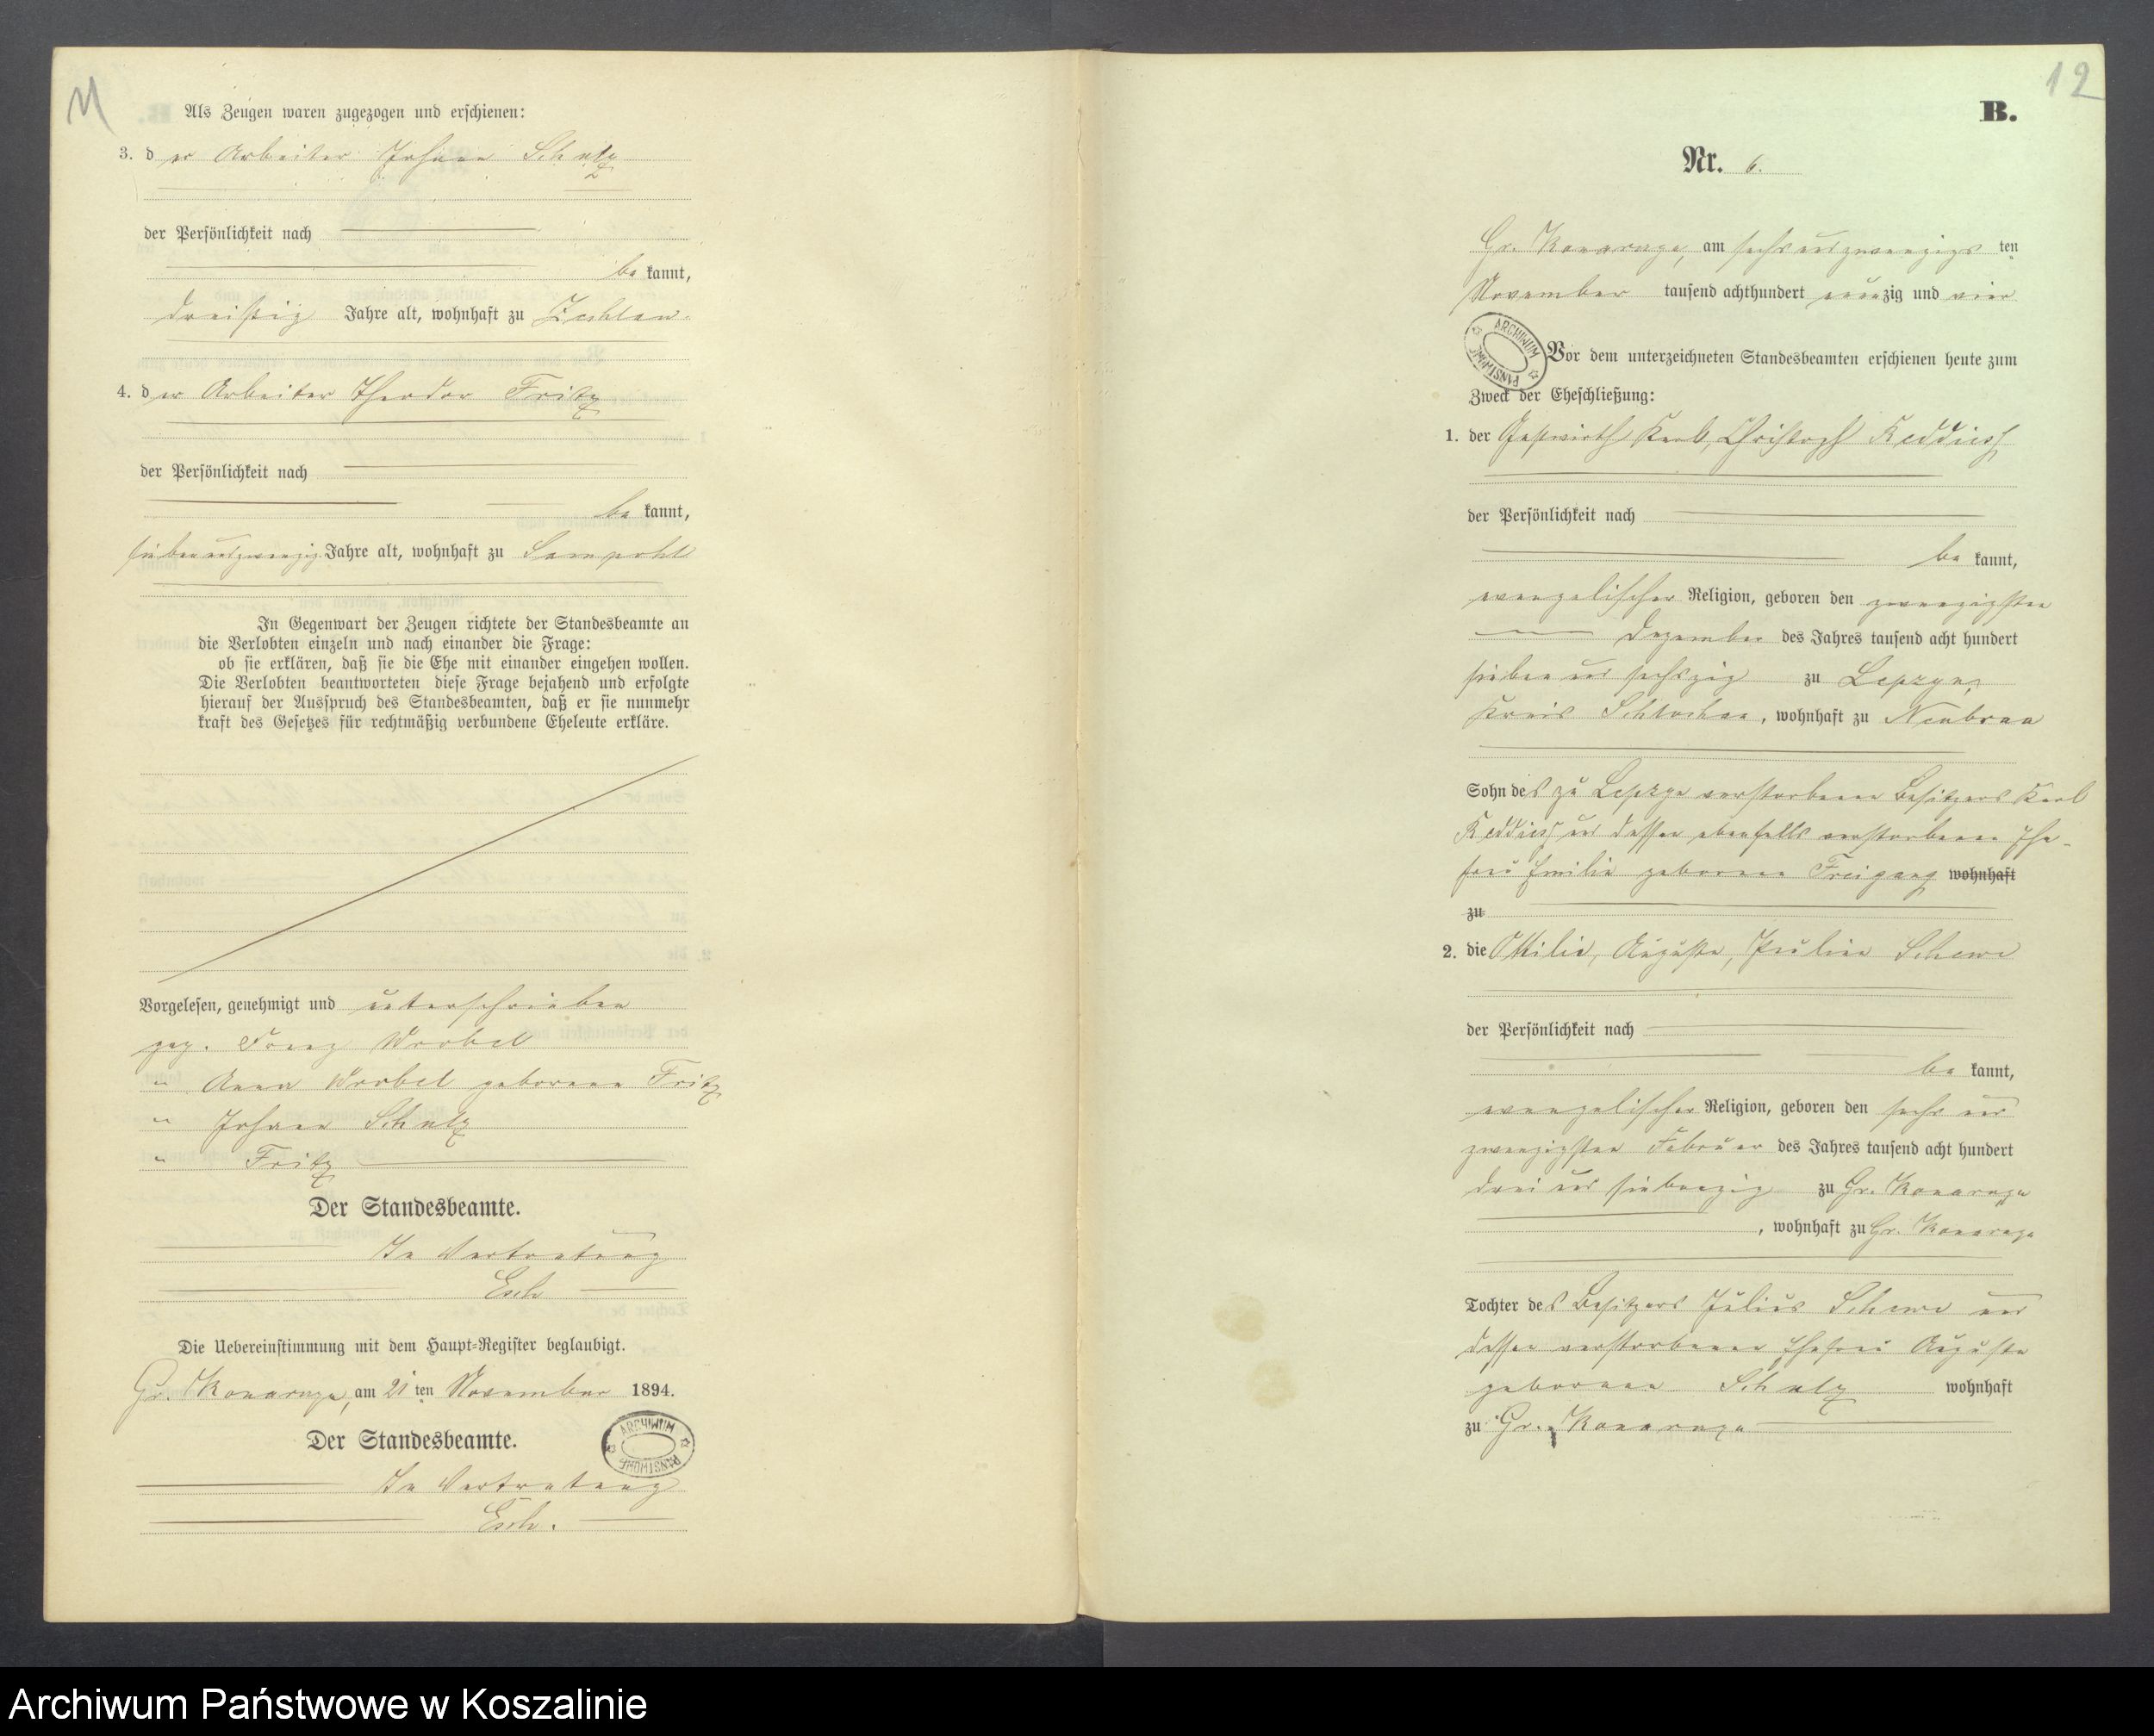 11
Als Zeugen waren zugezogen und erschienen:
3. der Arbeiter Johann Schulz
der Persönlichkeit nach
be kannt,
dreißig Jahre alt, wohnhaft zu Zechlau.
4. der Arbeiter Theodor Fritz
der Persönlichkeit nach
be kannt,
siebenundzwanzig Jahre alt, wohnhaft zu Sampohl
In Gegenwart der Zeugen richtete der Standesbeamte an
die Verlobten einzeln und nach einander die Frage:
ob sie erklären, daß sie die Ehe mit einander eingehen wollen.
Die Verlobten beantworteten diese Frage bejahend und erfolgte
hierauf der Ausspruch des Standesbeamten, daß er sie nunmehr
kraft des Gesetzes für rechtmäßig verbundene Eheleute erkläre.
Vorgelesen, genehmigt und unterschrieben
gez. Franz Wrobel
" Anna Wrobel geborene Fritz
" Johann Schulz
" Fritz
Der Standesbeamte.
In Vertretung
Esch
Die Uebereinstimmung mit dem Haupt-Register beglaubigt.
Gr. Konarczyn, am 21 ten November 1894.
Der Standesbeamte.
In Vertretung
Esch.
ARCHIWUM PAŃSTWOWE
12
B.
Nr. 6.
Gr. Konarczyn, am sechsundzwanzigs ten
November tausend achthundert neunzig und vier
ARCHIWUM PAŃSTWOWE
Vor dem unterzeichneten Standesbeamten erschienen heute zum
Zweck der Eheschließung:
1. der Gastwirth Karl, Christoph Reddies
der Persönlichkeit nach
be kannt,
evangelischer Religion, geboren den zwanzigsten
Dezember des Jahres tausend acht hundert
sieben und sechszig zu
Kreis Schlochau, wohnhaft zu Neubraa
Sohn des zu verstorbenen Besitzers Karl
Reddies und dessen ebenfalls verstorbenen Ehe-
frau Emilie geborene Freigang wohnhaft
zu
2. die Ottilie, Auguste, Pauline Schewe
der Persönlichkeit nach
be kannt,
evangelischer Religion, geboren den sechs und
zwanzigsten Februar des Jahres tausend acht hundert
drei und siebenzig zu Gr. Konarczyn
, wohnhaft zu Gr. Konarczyn
Tochter des Besitzers Julius Schewe und
dessen verstorbenen Ehefrau Auguste
geborene Schulz wohnhaft
zu Gr. Konarczyn
Archiwum Państwowe w Koszalinie